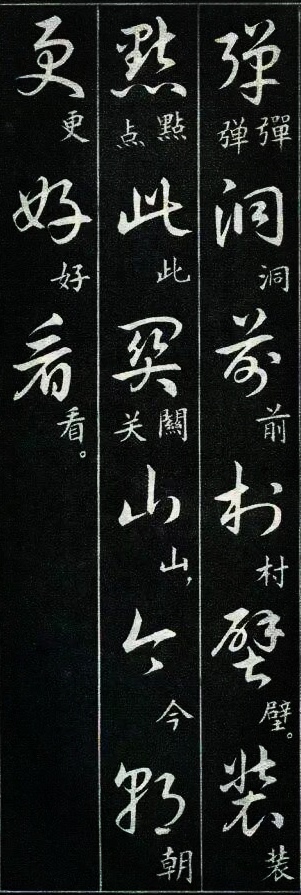 彈彈弹洞洞前前村村壁壁。裝装
點點点此此關關关山山，今今朝朝
更更好好看看。